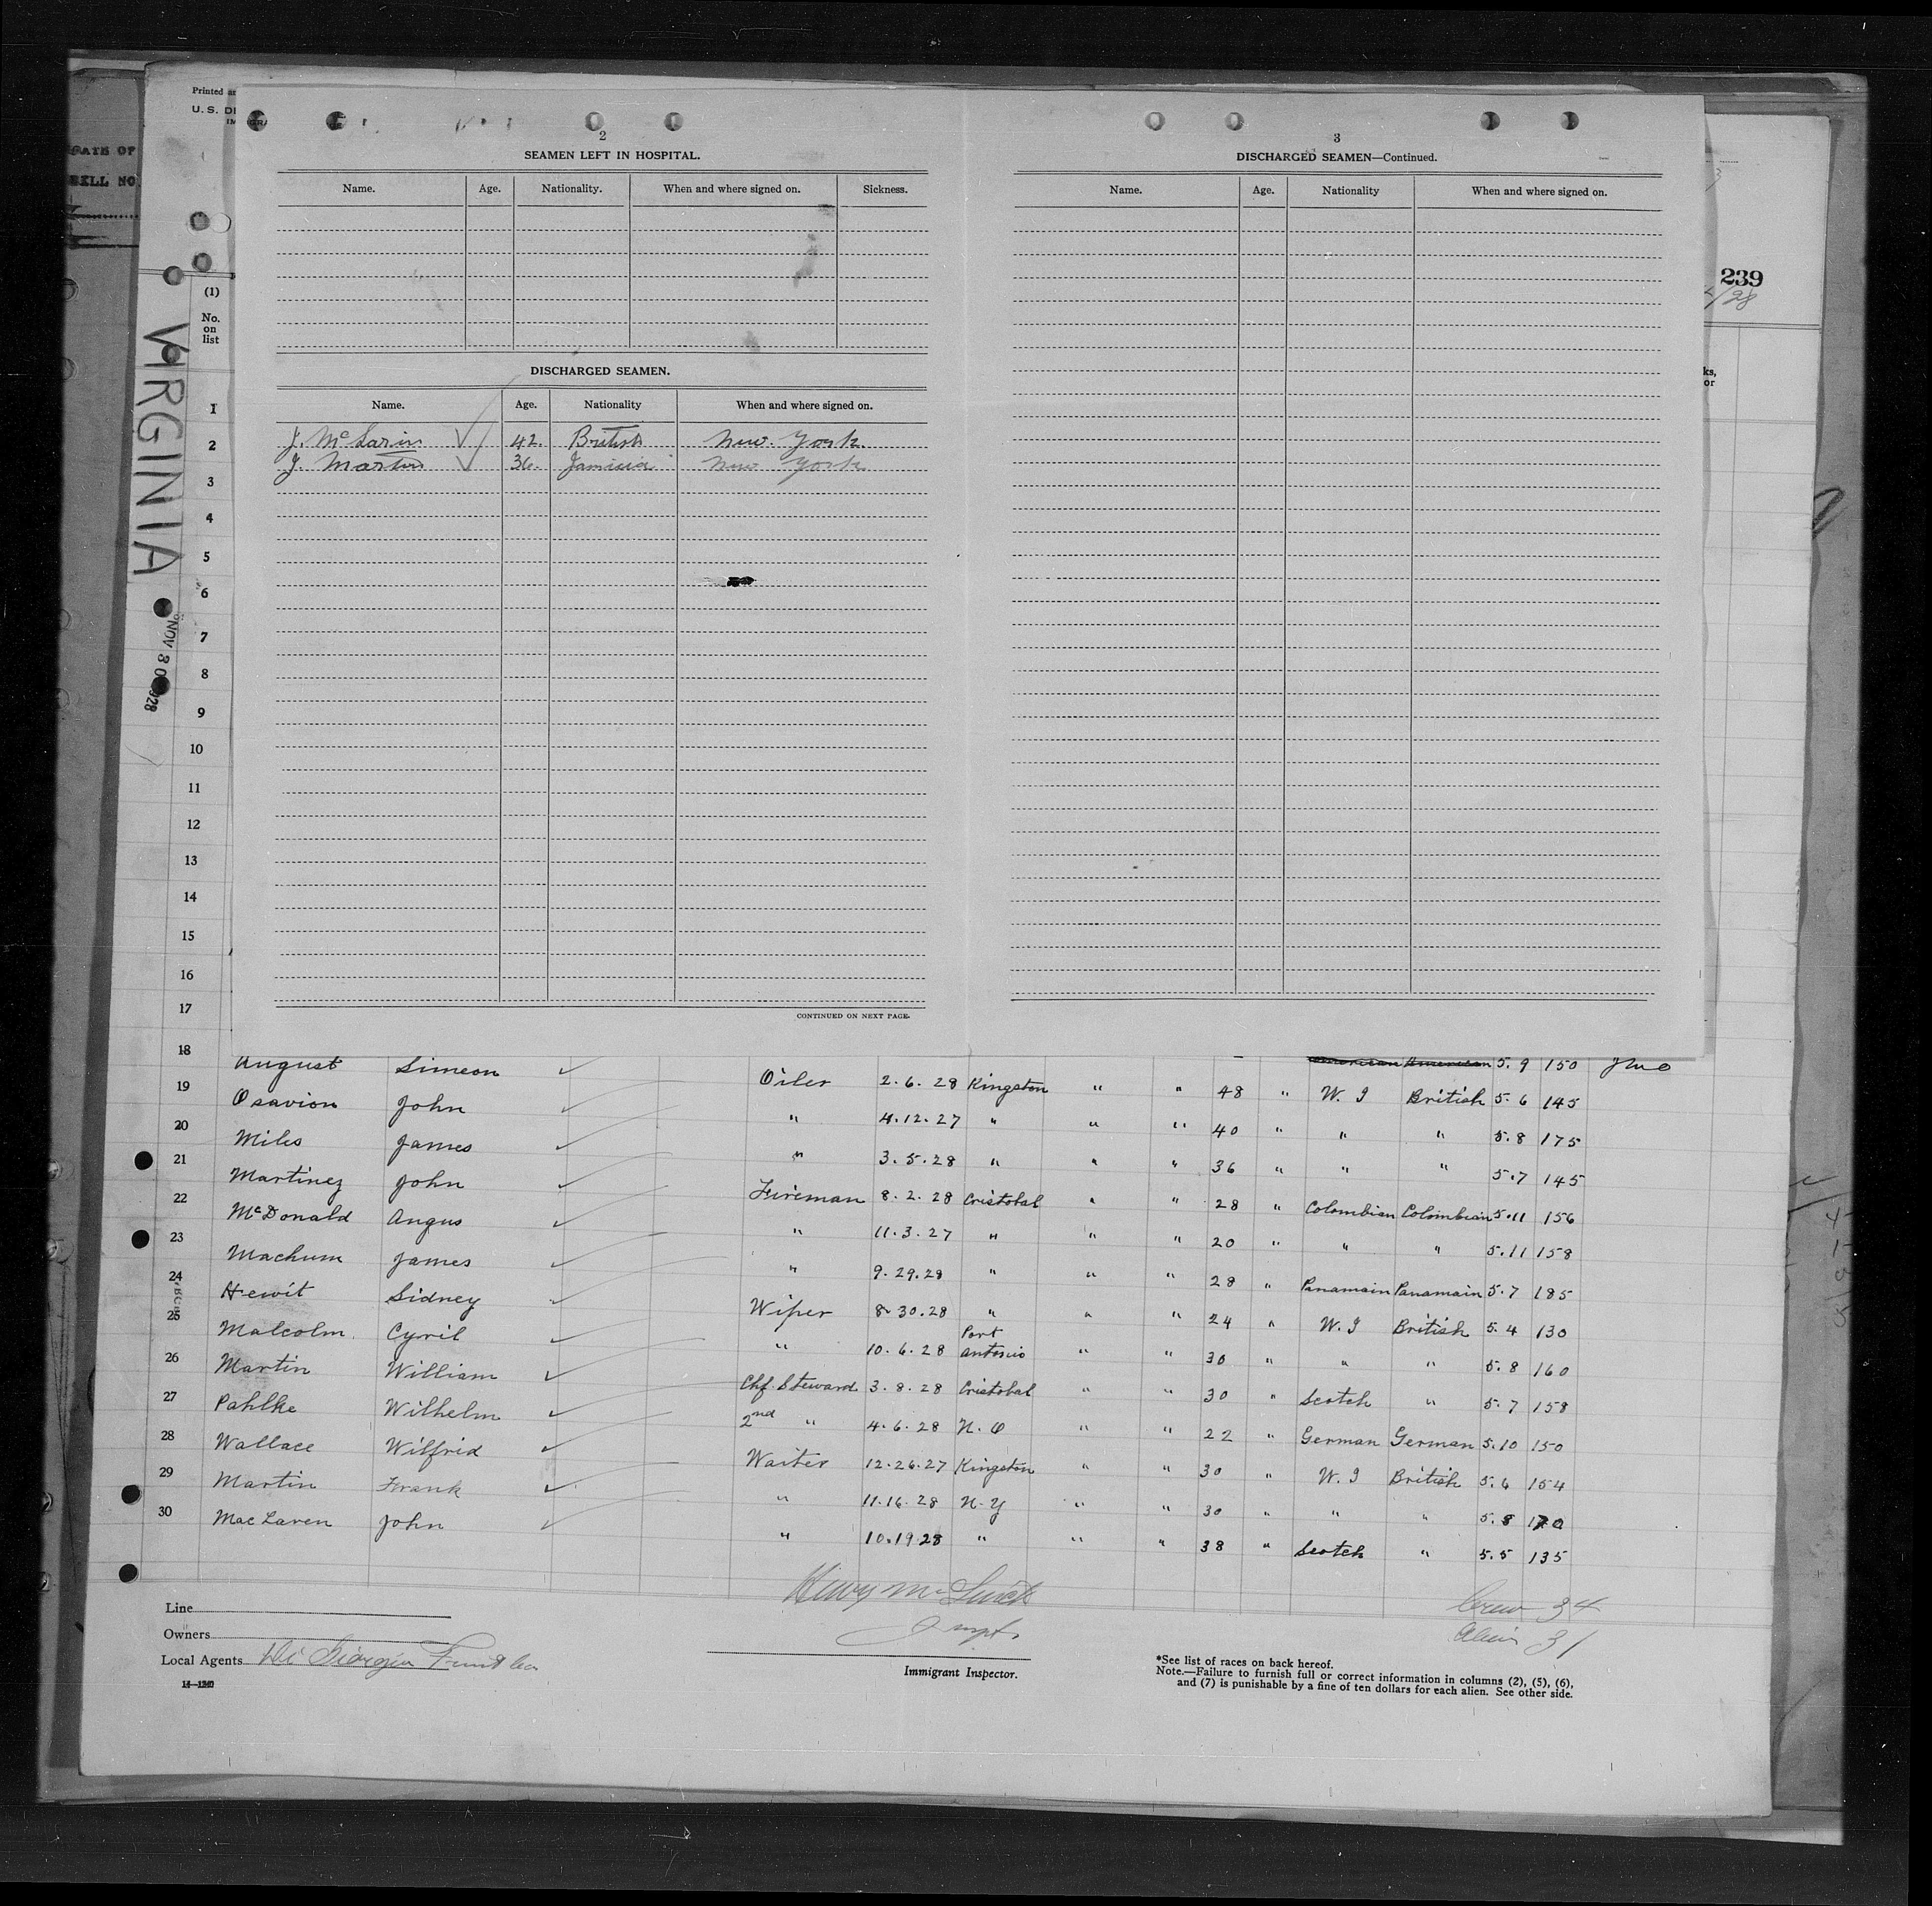 Printed
U. S. D
DATE OF
BILL NO
VIRGINIA
NOV 30 1928
239
2
SEAMEN LEFT IN HOSPITAL.
Name. Age. Nationality. When and where signed on. Sickness.
DISCHARGED SEAMEN.
Name. Age. Nationality When and where signed on.
J. McLarin 42. British New York
J. Martin 36. Jamicia New York
CONTINUED ON NEXT PAGE.
3
DISCHARGED SEAMEN—Continued.
Name. Age. Nationality When and where signed on.
(1)
No.
on
list
ks,
or
1
2
3
4
5
6
7
8
9
10
11
12
13
14
15
16
17
18 American American 5.9 150
19 August Simeon Oiler 2.6.28 Kingston " " 48 " W. I British 5.6 145
20 Osavion John " 4.12.27 " " " 40 " " " 5.8 175
21 Miles James " 3.5.28 " " " 36 " " " 5.7 145
22 Martinez John Fireman 8.2.28 Cristobal " " 28 " Colombian Colombian 5.11 156
23 McDonald Angus " 11.3.27 " " " 20 " " " 5.11 158
24 Machum James " 9.29.28 " " " 28 " Panamain Panamain 5.7 185
25 Hewit Sidney Wiper 8.30.28 " " " 24 " W. I British 5.4 130
26 Malcolm Cyril " 10.6.28 Port Antonio " " 30 " " " 5.8 160
27 Martin William Chf. Steward 3.8.28 Cristobal " " 30 " Scotch " 5.7 158
28 Pahlke Wilhelm 2nd " 4.6.28 N. O " " 22 " German German 5.10 150
29 Wallace Wilfrid Waiter 12.26.27 Kingston " " 30 " W. I British 5.6 154
30 Martin Frank " 11.16.28 N. Y " " 30 " " " 5.8 170
MacLaren John " 10.19.28 " " " 38 " Scotch " 5.5 135
Crew 34
Alien 31
Line
Owners
Local Agents Di Giorgio Fruit Co
14—1240
Immigrant Inspector.
*See list of races on back hereof.
Note.—Failure to furnish full or correct information in columns (2), (5), (6),
and (7) is punishable by a fine of ten dollars for each alien. See other side.